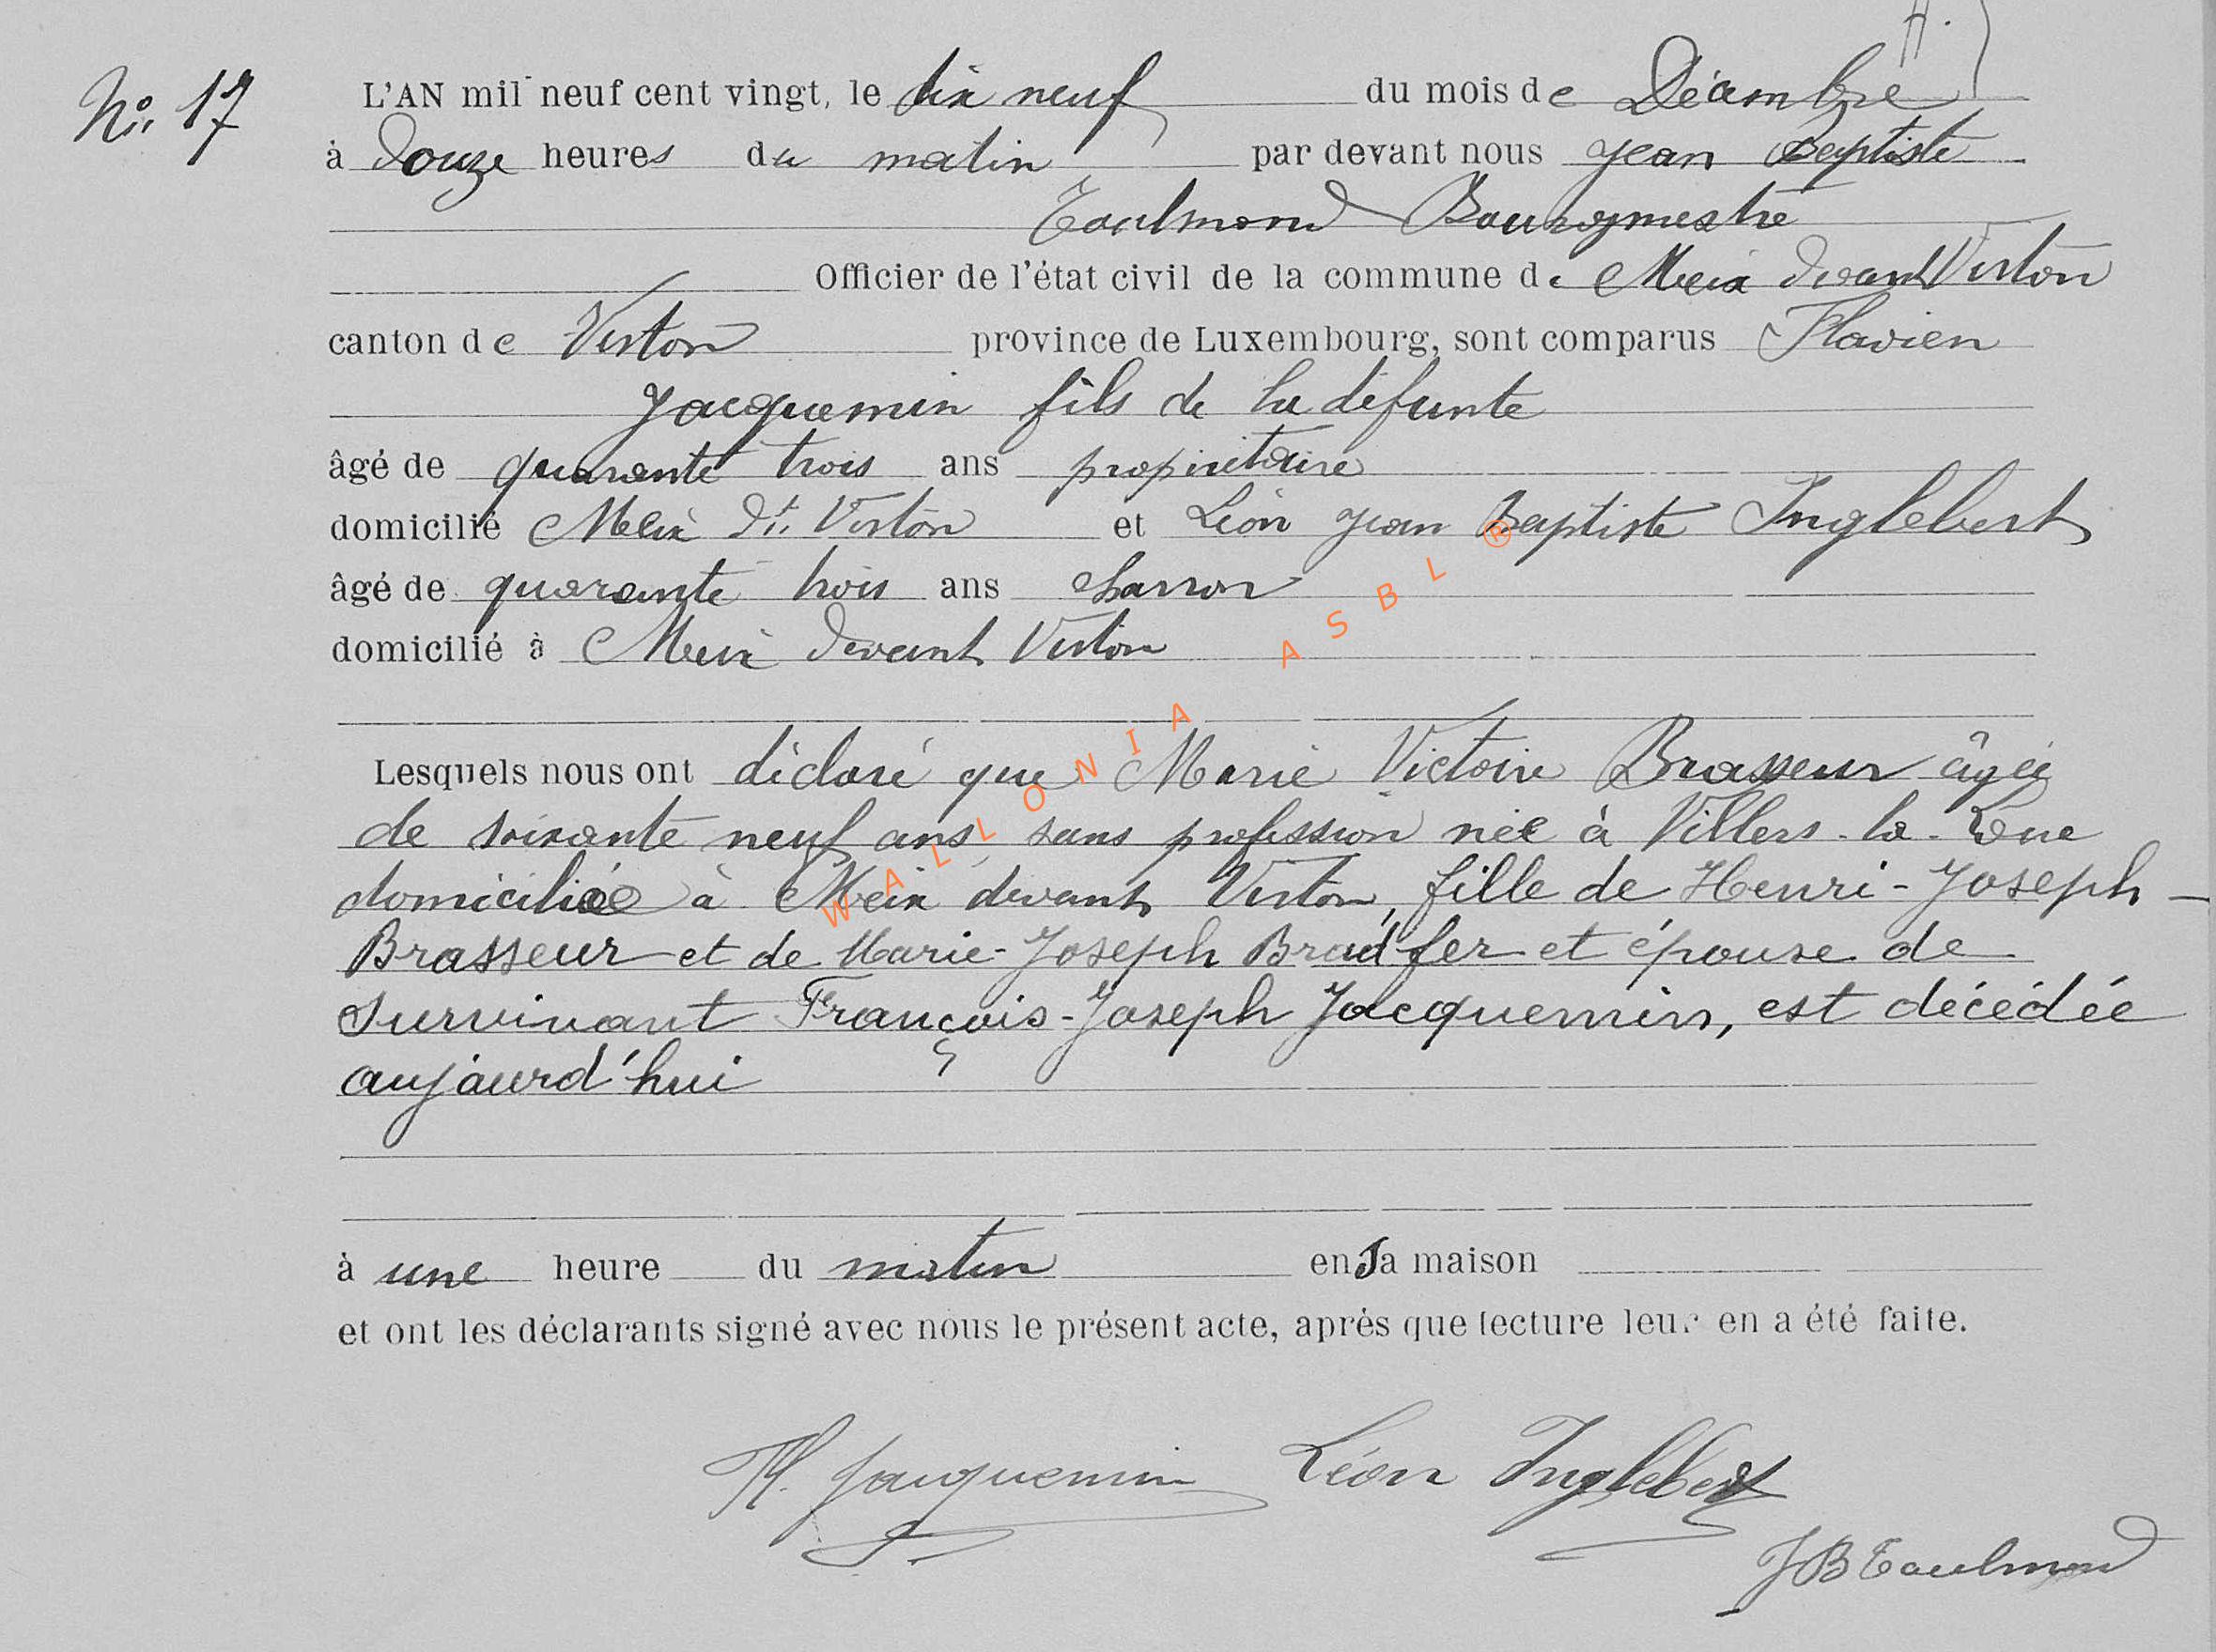 N° 17
L'AN mil neuf cent vingt, le dix neuf du mois de Décembre
à Douze heures du matin par devant nous Jean Baptiste
Toulmond Bourgmestre
Officier de l'état civil de la commune de Meix devant Virton
canton de Virton province de Luxembourg, sont comparus Flavien
Jacquemin fils de la défunte
âgé de quarante trois ans propriétaire
domicilié Meix Dt. Virton et Léon Jean Baptiste Inglebert
âgé de quarante trois ans charron
domicilié à Meix devant Virton
Lesquels nous ont déclaré que Marie Victoire Brasseur âgée
de soixante neuf ans, sans profession née à Villers-la-Loue
domiciliée à Meix devant Virton, fille de Henri-Joseph-
Brasseur et de Marie-Joseph Bradfer et épouse de
survivant François-Joseph Jacquemin, est décédée
aujourd'hui
à une heure du matin en sa maison
et ont les déclarants signé avec nous le présent acte, après que lecture leur en a été faite.
Fl. Jacquemin Léon Inglebert
JB Toulmond
WALLONIA ASBL ®